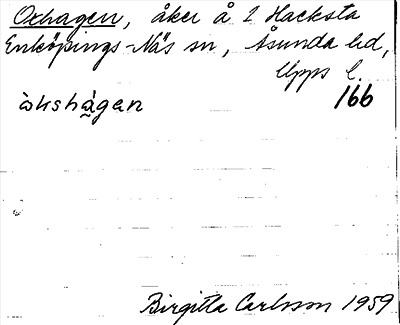 Oxhagen, åker å 2 Hacksta
Enköpings-Näs sn, Åsunda hd,
Upps l.
òkshàgen 166
Birgitta Carlsson 1959